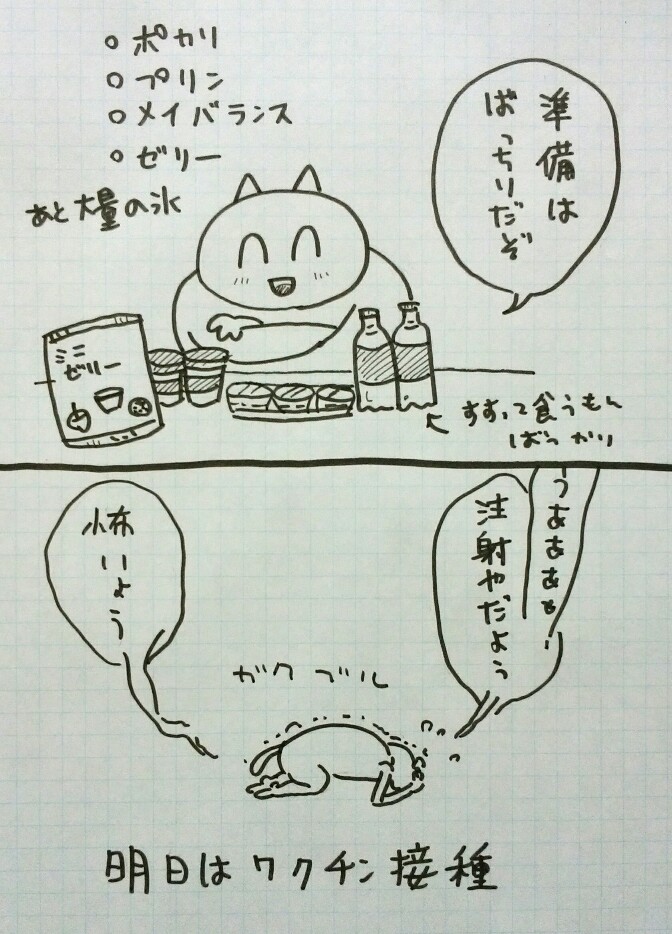 ○ ポカリ
○ プリン
○ メイバランス
○ ゼリー
あと大量の氷
準備は
ばっちりだぞ
ミニ
ゼリー
すすって食うもん
ばっかり
うああぁぁ
注射やだよぅ
怖いよぅ
ガクブル
明日はワクチン接種